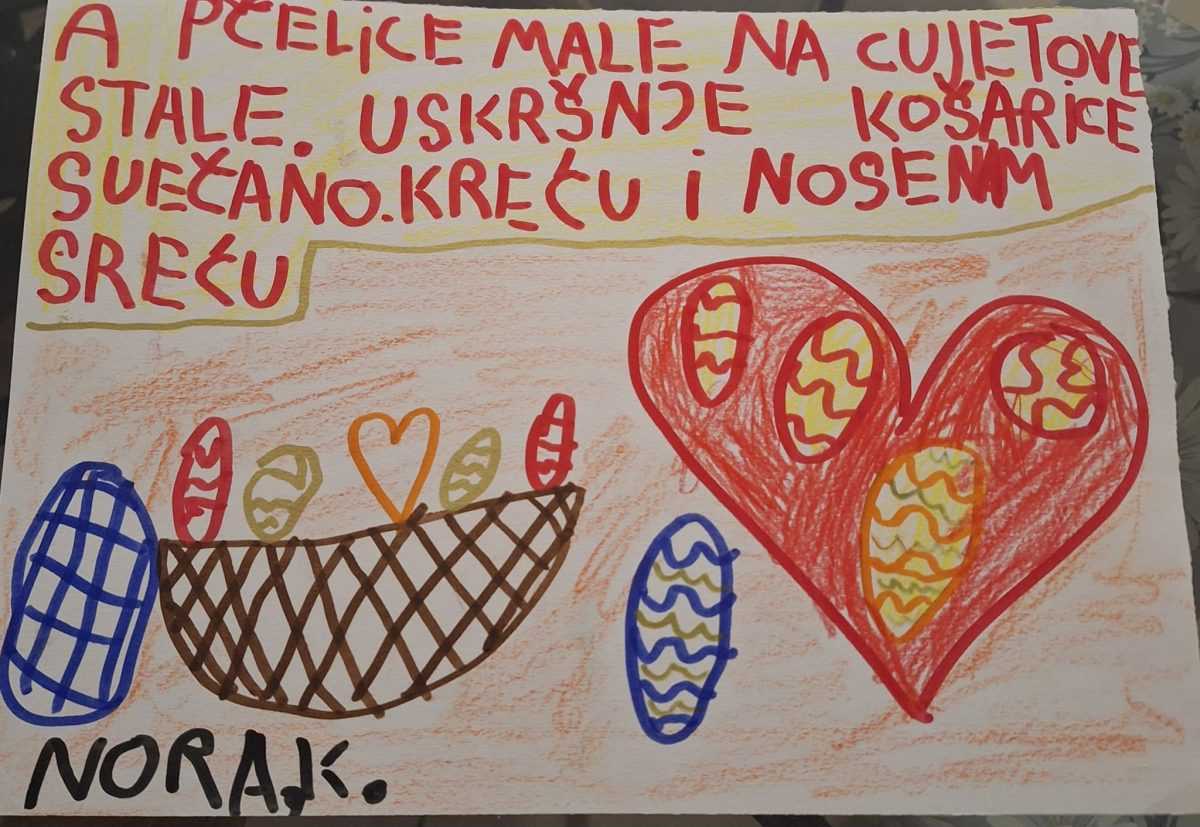 A PČELICE MALE NA CVJETOVE
STALE. USKRŠNJE KOŠARICE
SVEČANO.KREĆU I NOSE NAM
SREĆU
NORA.K.